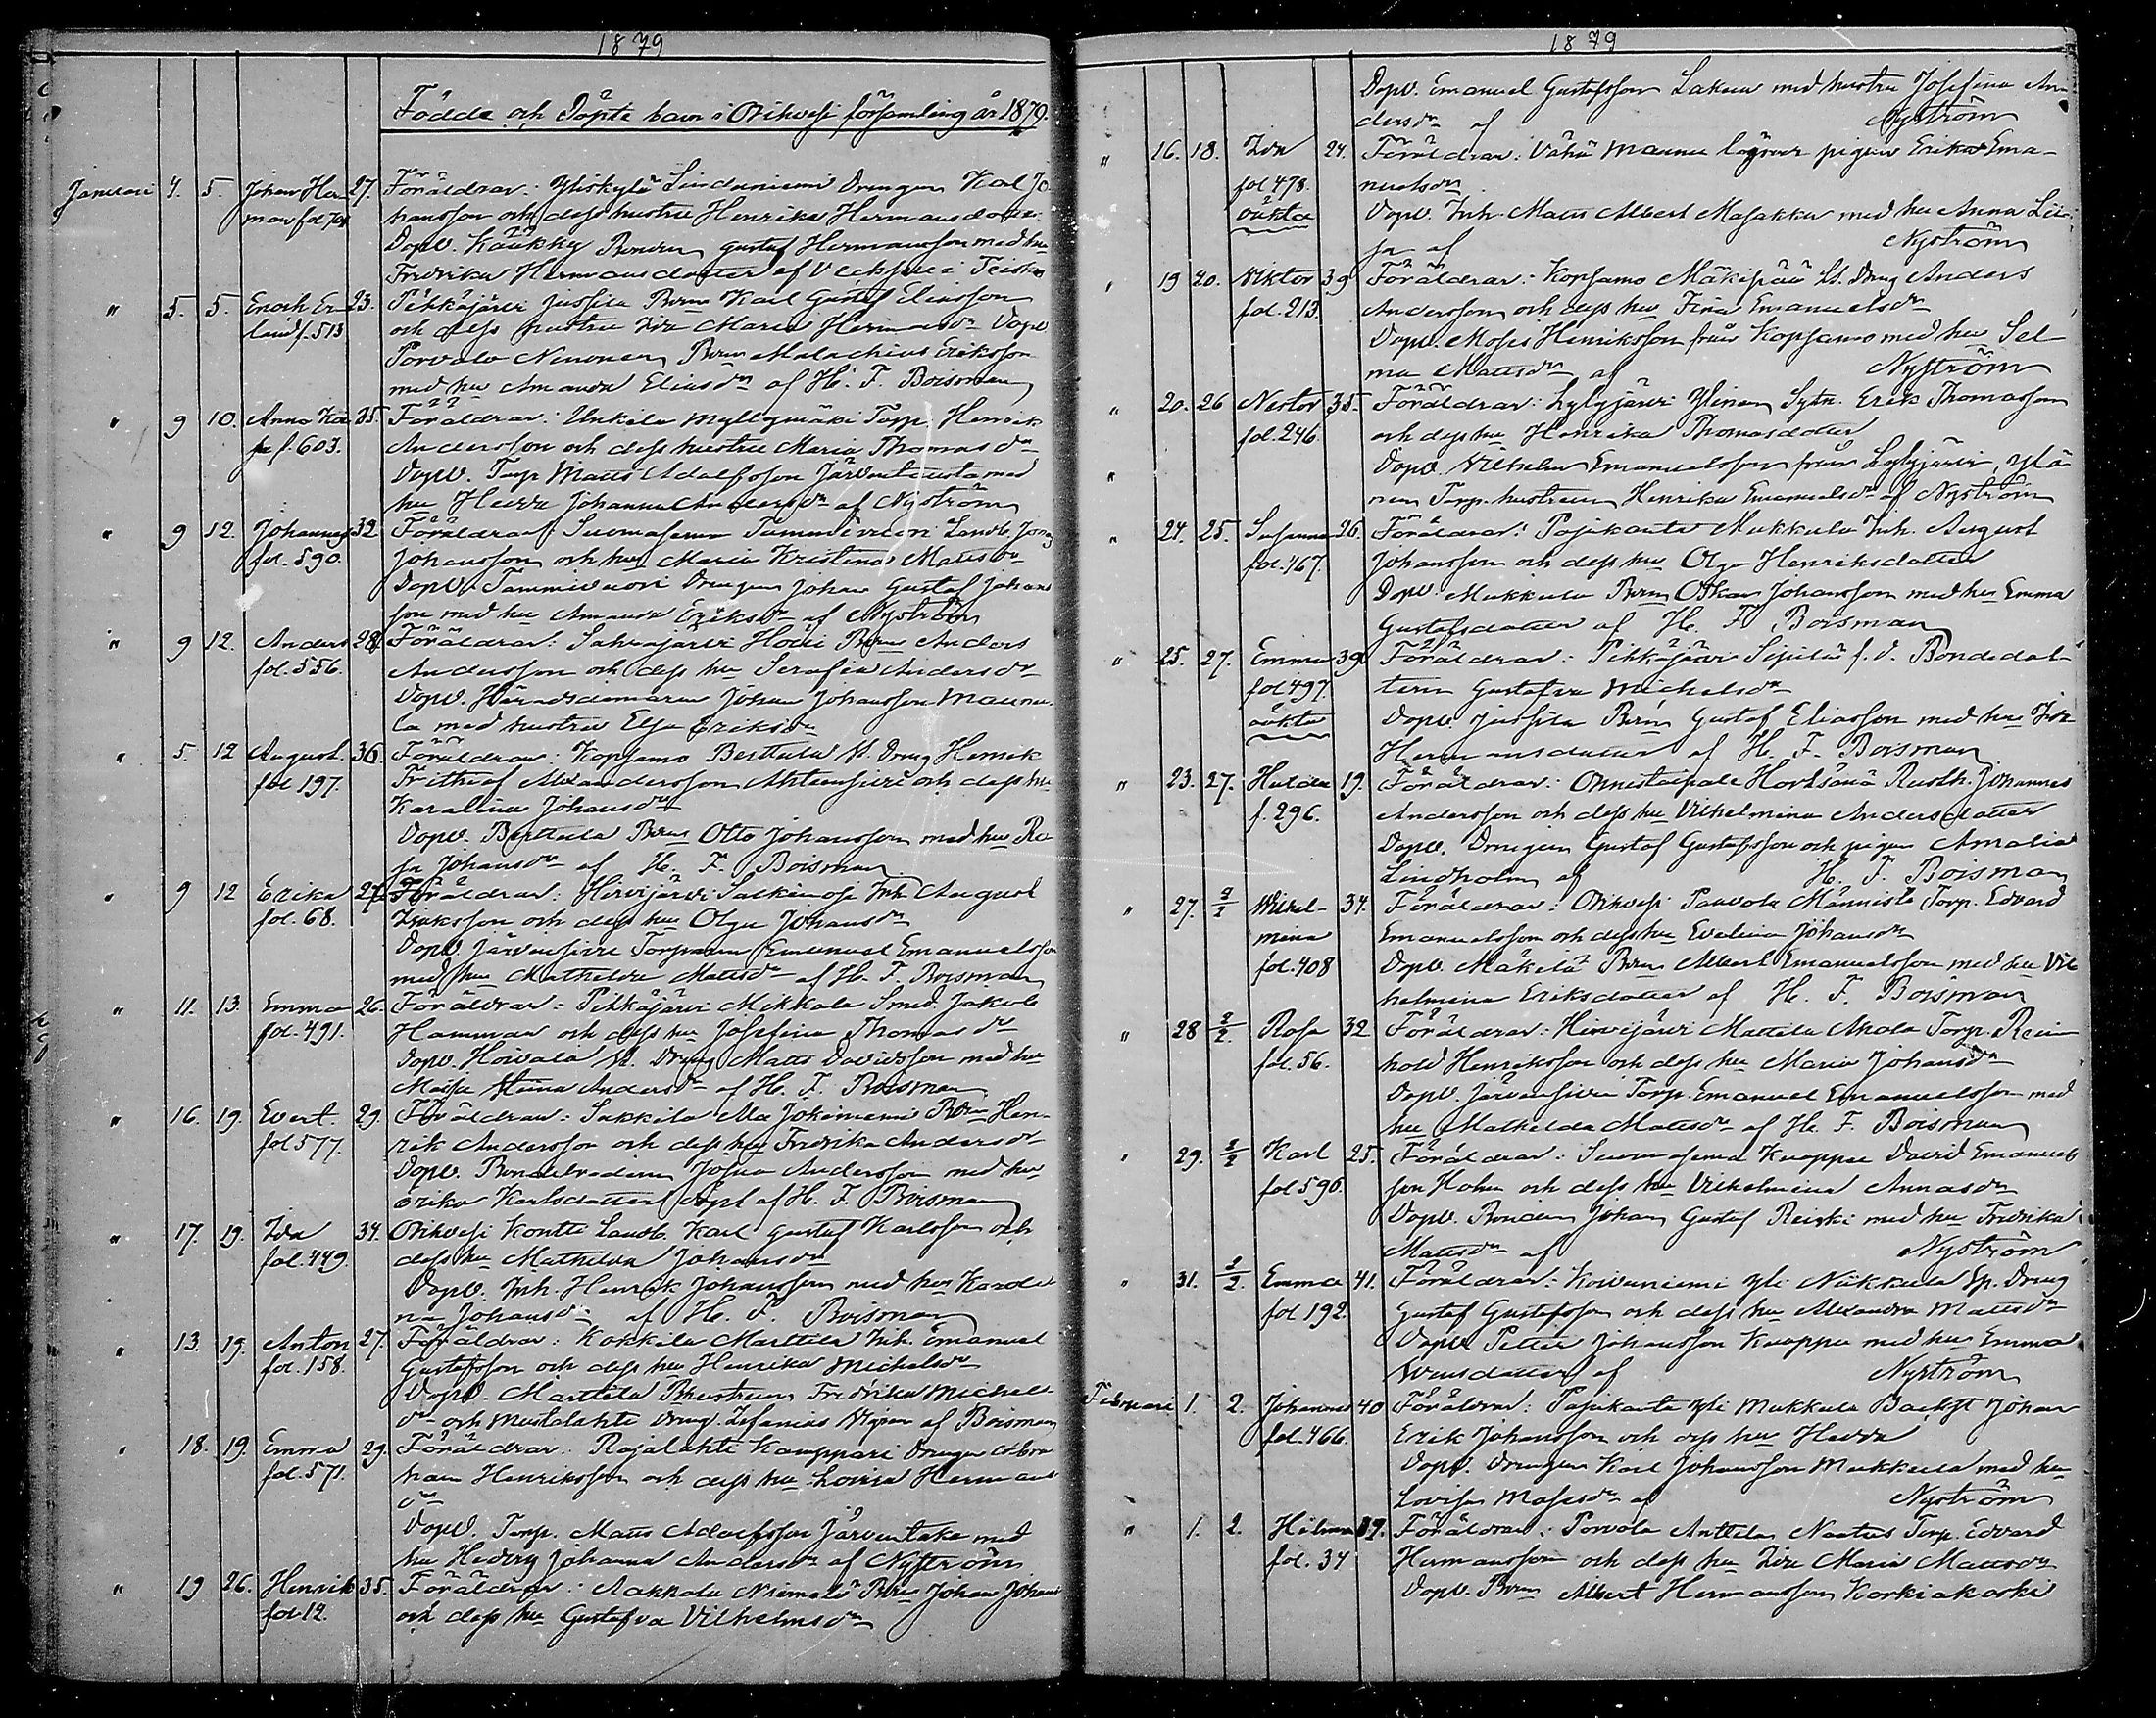 1879
Födde och Döpte barn i Orihvesi församling år 1879.
Januari 4. 5. Johan Her- 27. Föräldrar: Yliskylä Linduniemi Drengen Karl Jo-
man fol 701 hansson och dess hustru Henrika Hermansdotter
Dopv. Käükky Bonden Gustaf Hermansson med hu
Fredrika Hermansdotter af Veckjui i Teisko
" 5. 5. Enock Er- 23. Pihkäjärvi Jussila Bon Karl Gustaf Eliasson
land f. 513 och dess hustru Ida Maria Hermansdr Dopv
Porvola Nenonen Bon Malachius Eriksson
med hu Amanda Eliasdr af H. F. Boisman
" 9 10. Anna Kai- 35. Föräldrar: Unkila Myllymäki Torp. Henrik
sa f. 603. Andersson och dess hustru Maria Thomasdr
Dopv. Torp Matts Adolfsson Järventausta med
hu Hedda Johanna Andersdr af Nyström
" 9 12. Johannes 32 Föräldrar: Suomasema Tammivuori Landb. Jonas
fol. 590. Johansson och hu Maria Kristina Mattsdr
Dopv. Tammivuori Drengen Johan Gustaf Johans
son med hu Amanda Eriksdr af Nyström
" 9 12. Anders 28. Föräldrar: Sahrajärvi Hoivi Bon Anders
fol. 556. Andersson och dess hu Serafia Andersdr
Dopv. Häradsdomaren Johan Johansson Maunu-
la med hustru Elsa Eriksdr
" 5. 12 August. 36. Föräldrar: Kopsamo Berttula St. Dreng Henrik
fol 197. Frithiof Alexandersson Ahtiensivu och dess hu
Karolina Johansdr
Dopv. Berttula Bon Otto Johansson med hu Ro-
sa Johansdr af H. F. Boisman
" 9 12 Erika 27. Föräldrar: Hirvijärvi Salkinoja Inh. August
fol. 68. Isaksson och dess hu Olga Johansdr
Dopv. Järvensivu Torparen Emanuel Emanuelsson
med hu Mathilda Mattsdr af H. F. Boisman
" 11. 13. Emma 26. Föräldrar: Pihkäjärvi Mikkola Smed. Jakob
fol. 491. Hamman och dess hu Josefina Thomasdr
Dopv. Hoivala St. Dreng Matts Davidsson med hu
Maija Stina Andersdr af H. F. Boisman
" 16. 19. Evert. 29. Föräldrar: Sakkila Ala Jokiniemi Bon Hen-
fol 577. rik Andersson och dess hu Fredrika Andersdr
Dopv. Bondebrodern Josua Andersson med hu
Erika Karlsdotter af H. F. Boisman
" 17. 19. Ida 34. Orihvesi Kontti Landb. Karl Gustaf Karlsson och
fol. 449. dess hu Mathilda Johansdr
Dopv. Inh. Henrik Johansson med hu Karoli-
na Johansdr af H. F. Boisman
" 13. 19. Anton 27. Föräldrar: Kokkila Marttila Inh. Emanuel
fol. 158. Gustafsson och dess hu Henrika Michelsdr
Dopv. Marttila Bhustrun Fredrika Michels
dr och Mustalahti Dreng Zefanias af Boisman
" 18. 19. Emma 29. Föräldrar: Rajalahti Kamppari Drengen Abra-
fol. 571. ham Henriksson och dess hu Lovisa Hermans
dr
Dopv. Torp. Matts Adolfsson Järventaka med
hu Hedvig Johanna Andersdr af Nyström
" 19 26. Henrik 35. Föräldrar: Aakkola Niemelä Bon Johan Johans
fol 12. och dess hu Gustafva Vilhelmsdr
1879
Dopv. Emanuel Gustafsson Lakua med hustru Josefina An-
dersdr af Nyström
" 16. 18. Ida 24. Föräldrar: Vähä Maunu lägrade pigan Erika Ema-
fol 478. nuelsdr
oäkta Dopv. Inh. Matts Albert Masakka med hu Anna Lii-
sa af Nyström
" 19 20. Viktor 39 Föräldrar: Kopsamo Mäkipää St. Dreng Anders
fol. 213. Andersson och dess hu Fina Emanuelsdr
Dopv. Moses Henriksson från Kopsamo med hu Sel-
ma Mattsdr af Nyström
" 20. 26 Nestor 35. Föräldrar: Lylyjärvi Ylinen Sytn. Erik Thomasson
fol. 246. och dess hu Henrika Thomasdotter
" Dopv. Vilhelm Emanuelsson från Lylyjärvi, Ylä-
nen Torp. hustrun Henrika Emanuelsdr af Nyström
" 24. 25. Susanna 26. Föräldrar: Pajukanta Mukkula Inh. August
fol. 467. Johansson och dess hu Olga Henriksdotter
Dopv. Mukkula Bon Oskar Johansson med hu Emma
Gustafsdotter af H. F. Boisman
" 25. 27. Emma 39. Föräldrar: Pihkäjärvi Sipilä f. d. Bondedot-
fol 497. tern Gustafva Michelsdr
oäkta Dopv. Jussila Bon Gustaf Eliasson med hu Ida
Hermansdotter af H. F. Boisman
" 23. 27. Hulda 19. Föräldrar: Onnistaipale Hortsänä Rusth. Johannes
f. 296. Andersson och dess hu Vilhelmina Andersdotter
Dopv. Drengen Gustaf Gustafsson och pigan Amalia
Lindholm af H. F. Boisman
" 27. 2/2 Wilhel- 34. Föräldrar: Orihvesi Paavola Männistö Torp. Edvard
mina Emanuelsson och dess hu Evelina Johansdr
fol. 408 Dopv. Mäkelä Bon Albert Emanuelsson med hu Vil-
helmina Eriksdotter af H. F. Boisman
" 28 2/2. Rosa 32 Föräldrar: Hirvijärvi Mattila Ahola Torp. Rein-
fol. 56. hold Henriksson och dess hu Maria Johansdr
Dopv. Järvensivu Torp. Emanuel Emanuelsson med
hu Mathilda Mattsdr af H. F. Boisman
" 29. 2/2 Karl 25. Föräldrar: Suomasema Knappu David Emanuels
fol 590. son Hohu och dess hu Vilhelmina Annasdr
Dopv. Bonden Johan Gustaf Reiski med hu Fredrika
Mattsdr af Nyström
" 31. 2/2. Emma 41. Föräldrar: Koivuniemi Yli Näkkula Sp. Dreng
fol 192. Gustaf Gustafsson och dess hu Alexandra Mattsdr
Dopv Petter Johansson Knappu med hu Emma
af Nyström
Februari 1. 2. Johannes 40 Föräldrar: Pajukanta Yli Mukkula Backst Johan
fol. 466. Erik Johansson och dess hu Hedda
Dopv. Drengen Karl Johansson Mukkula med hu
Lovisa Mosesdr af Nyström
" 1. 2. Hilma 37. Föräldrar: Porvola Anttila Naatus Torp. Edvard
fol. 34 Hermansson och dess hu Ida Maria Mattsdr
Dopv. Bon Albert Hermansson Korkiakoski